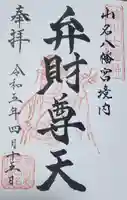 山名八幡宮境内
弁財尊天
奉拝
令和五年四月十五日